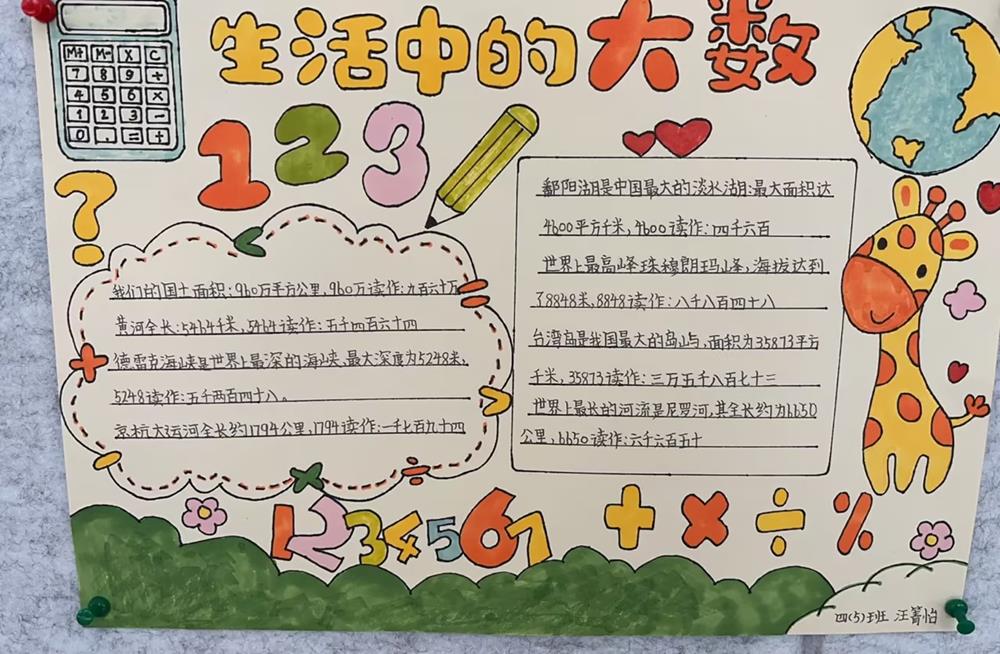 生活中的大数
M+ M- X C
7 8 9 ÷
4 5 6 ×
1 2 3 -
0 . = +
1 2 3
?
我们的国土面积:960万平方公里,960万读作:九百六十万
黄河全长:5464千米,5464读作:五千四百六十四
德雷克海峡是世界上最深的海峡、最大深度为5248米,
5248读作:五千两百四十八。
京杭大运河全长约1794公里,1794读作:一千七百九十四
鄱阳湖是中国最大的淡水湖:最大面积达
4600平方千米,4600读作:四千六百
世界上最高峰珠穆朗玛峰,海拔达到
了8848米,8848读作:八千八百四十八
台湾岛是我国最大的岛屿,面积为35873平方
千米,35873读作:三万五千八百七十三
世界上最长的河流是尼罗河,其全长约为6650
公里,6650读作:六千六百五十
1 2 3 4 5 6 7
+ × ÷ %
四(5)班 汪箐怡